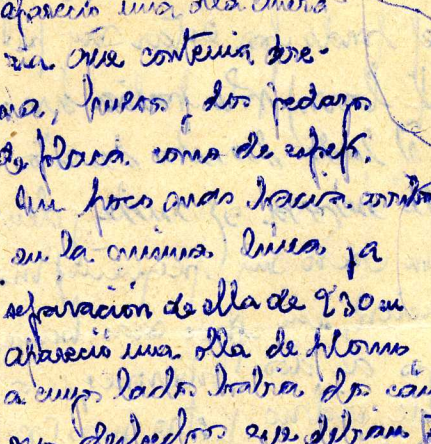 aparecio una olla
que contenia are-
na, huesos y dos pedazos
de placa como de
Un poco mas hacia arriba
en la misma linea ya
separación de ella de 2,30 m
aparecio una olla de plomo
a cuyos lados habia dos